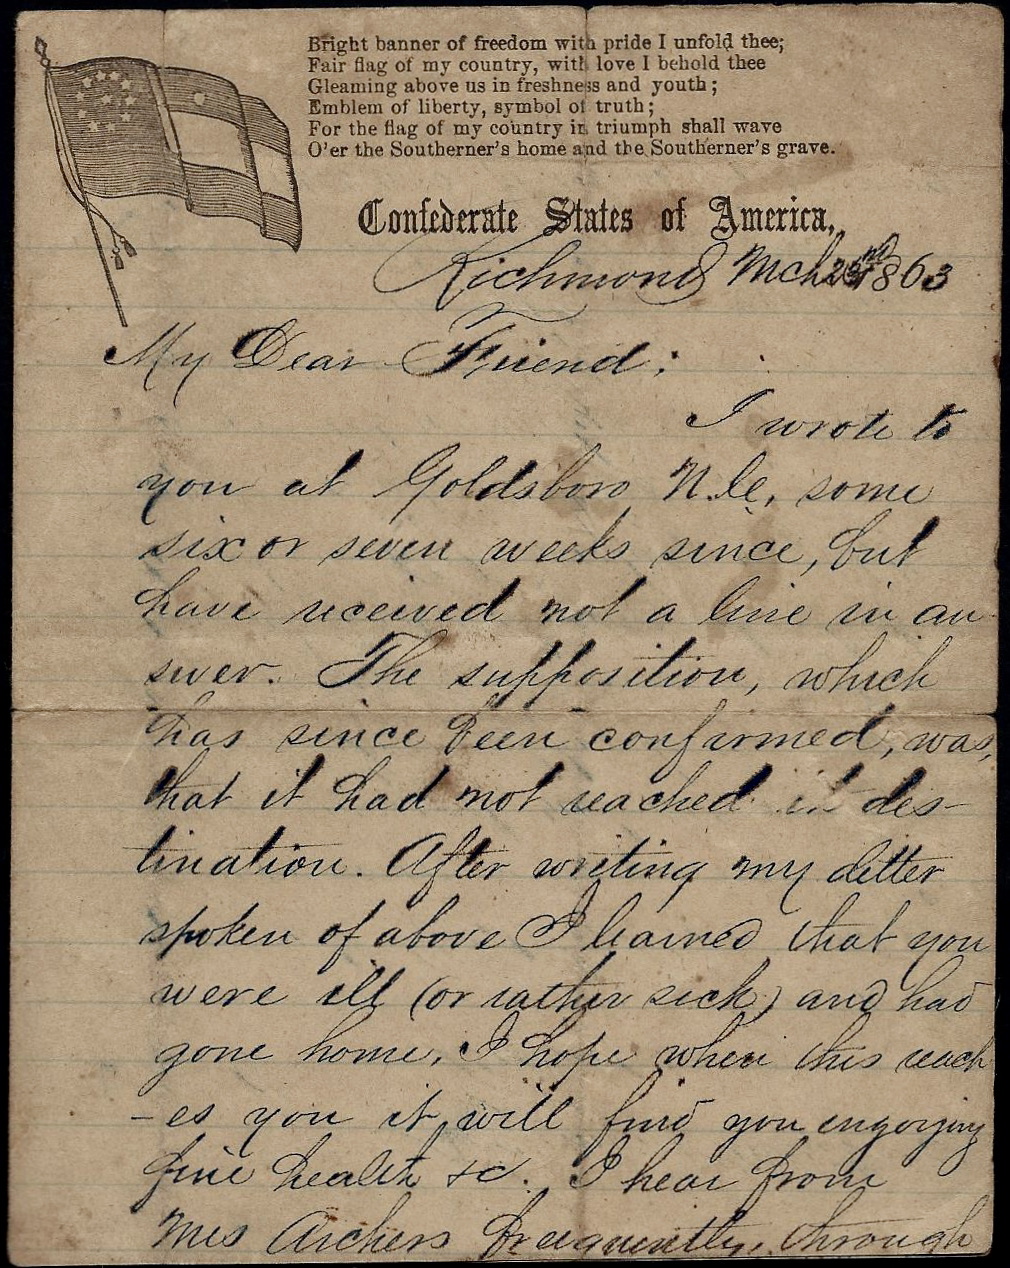 Bright banner of freedom with pride I unfold thee;
Fair flag of my country, with love I behold thee
Gleaming above us in freshness and youth;
Emblem of liberty, symbol of truth;
For the flag of my country in triumph shall wave
O'er the Southerner's home and the Southerner's grave.
Confederate States of America,
Richmond Mch 1863
My Dear Friend;
I wrote to
you at Goldsboro N.C., some
six or seven weeks since, but
have received not a line in an-
swer. The supposition, which
has since been confirmed, was,
that it had not reached its des-
tination. After writing my letter
spoken of above I learned that you
were ill (or rather sick) and had
gone home. I hope when this reach
-es you it will find you enjoying
fine health &c. I hear from
Mrs Archers frequently, through